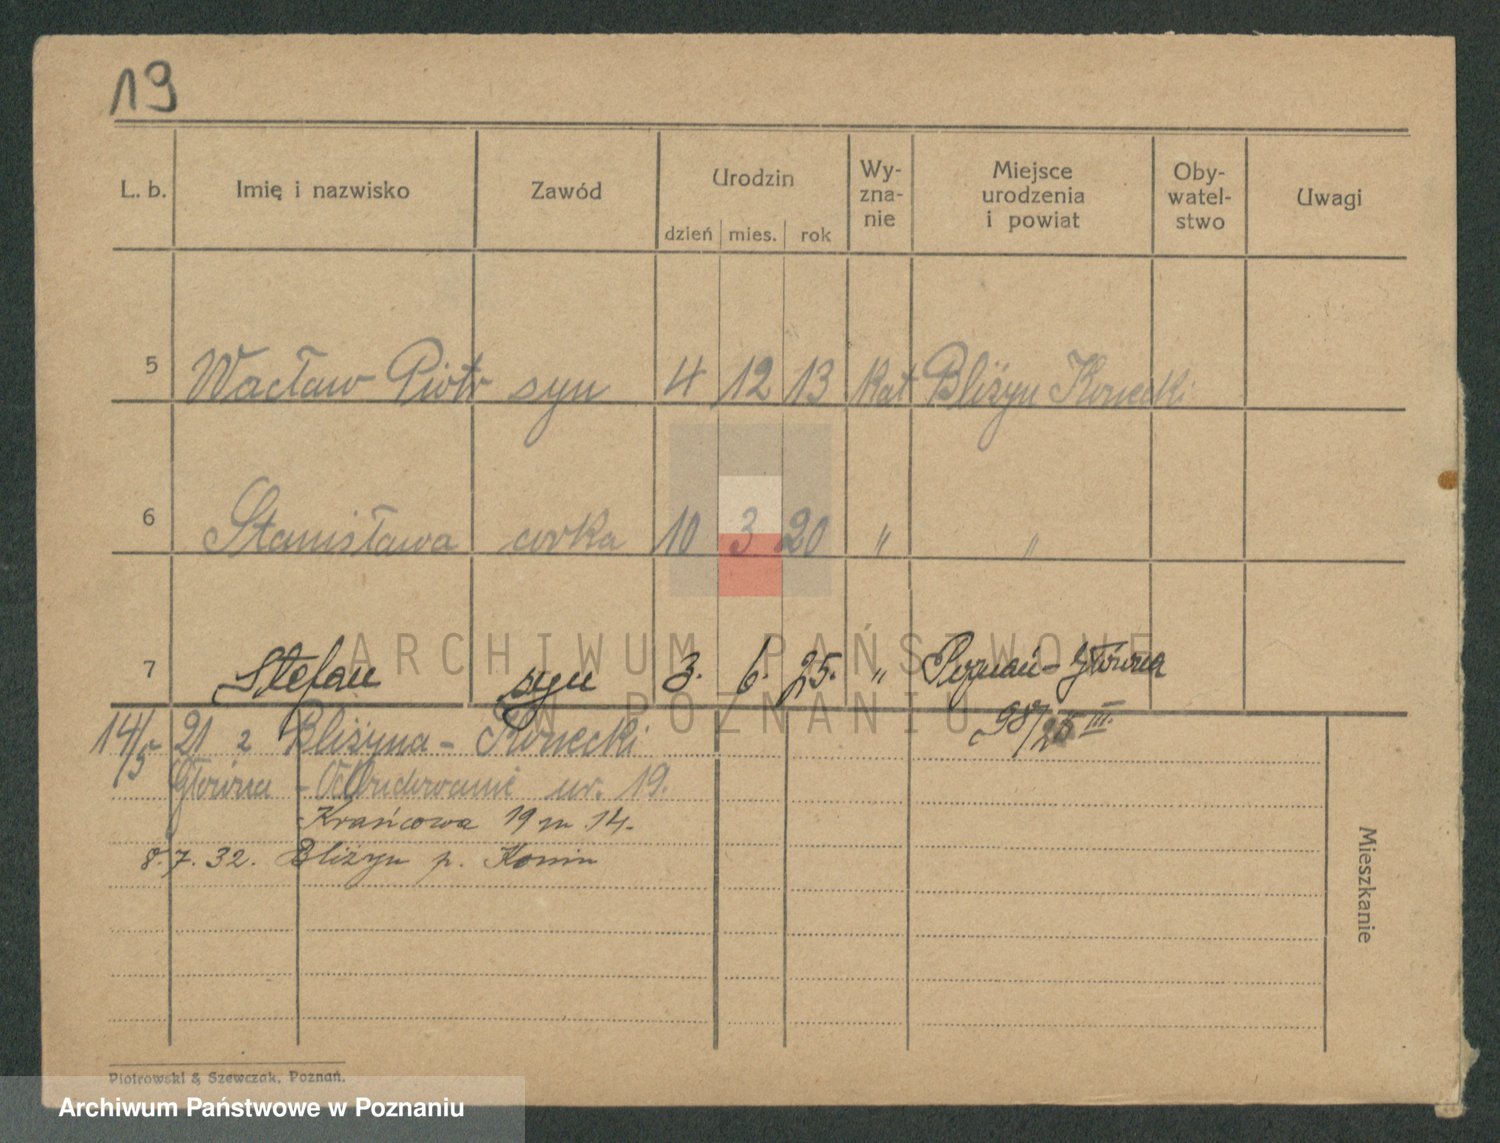 19
L. b. Imię i nazwisko Zawód Urodzin Wy-zna-nie Miejsce urodzenia i powiat Oby-watel-stwo Uwagi
dzień mies. rok
5 Wacław Piotr syn 4 12 13 kat Bliżyn Konecki
6 Stanisława corka 10 3 20 " "
7 Stefan syn 3. 6. 25. " Poznań-Główna
98/25 III.
ARCHIWUM PAŃSTWOWE
W POZNANIU
14/5 21 z Bliżyna - Konecki
Główna - Odbudowanie nr. 19.
Krańcowa 19 m 14.
8.7.32. Bliżyn p. Konin
Mieszkanie
Piotrowski & Szewczak, Poznań.
Archiwum Państwowe w Poznaniu